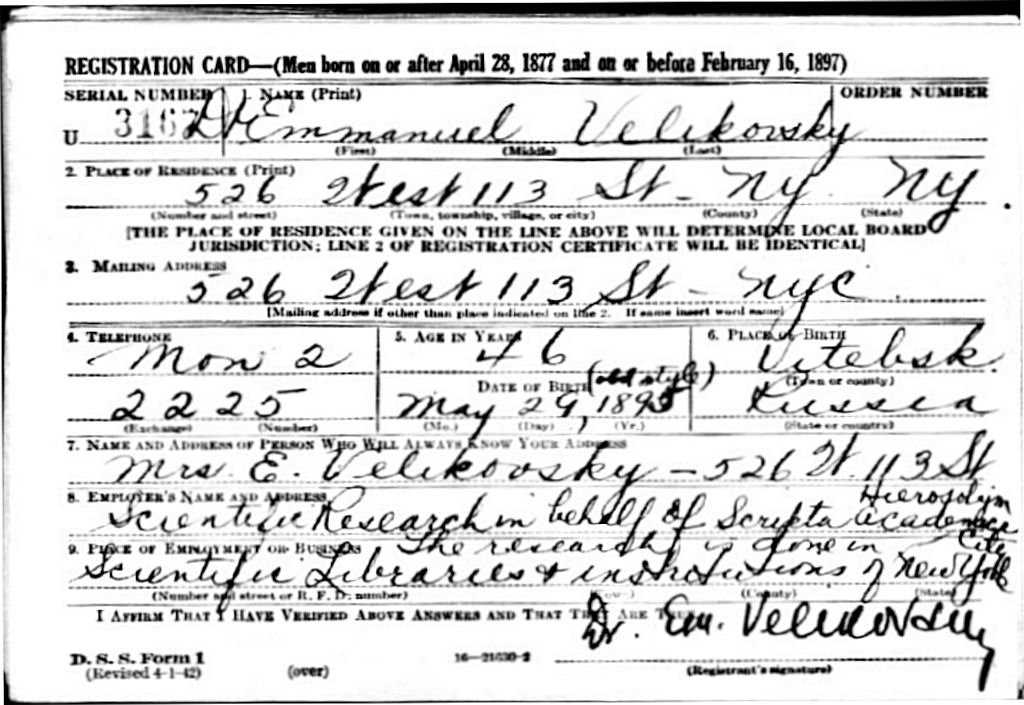 REGISTRATION CARD—(Men born on or after April 28, 1877 and on or before February 16, 1897)
SERIAL NUMBER 1. NAME (Print) ORDER NUMBER
U 3167 Dr Emmanuel Velikovsky
(First) (Middle) (Last)
2. PLACE OF RESIDENCE (Print)
526 West 113 St - NY NY
(Number and street) (Town, township, village, or city) (County) (State)
[THE PLACE OF RESIDENCE GIVEN ON THE LINE ABOVE WILL DETERMINE LOCAL BOARD
JURISDICTION; LINE 2 OF REGISTRATION CERTIFICATE WILL BE IDENTICAL]
3. MAILING ADDRESS
526 West 113 St - NYC
[Mailing address if other than place indicated on line 2. If same insert word same]
4. TELEPHONE 5. AGE IN YEARS 6. PLACE OF BIRTH
Mon 2 46 Vitebsk
DATE OF BIRTH (old style) (Town or county)
2225 May 29, 1895 Russia
(Exchange) (Number) (Mo.) (Day) (Yr.) (State or country)
7. NAME AND ADDRESS OF PERSON WHO WILL ALWAYS KNOW YOUR ADDRESS
Mrs. E. Velikovsky - 526 W. 113 St
8. EMPLOYER'S NAME AND ADDRESS
Scientific Research in behalf of Scripta Academica Hierosolym
9. PLACE OF EMPLOYMENT OR BUSINESS The research is done in
Scientific Libraries & institutions of New York City
(Number and street or R. F. D. number) (Town) (County) (State)
I AFFIRM THAT I HAVE VERIFIED ABOVE ANSWERS AND THAT THEY ARE TRUE.
Dr. Em. Velikovsky
D. S. S. Form 1 16—21630-2
(Revised 4-1-42) (over) (Registrant's signature)